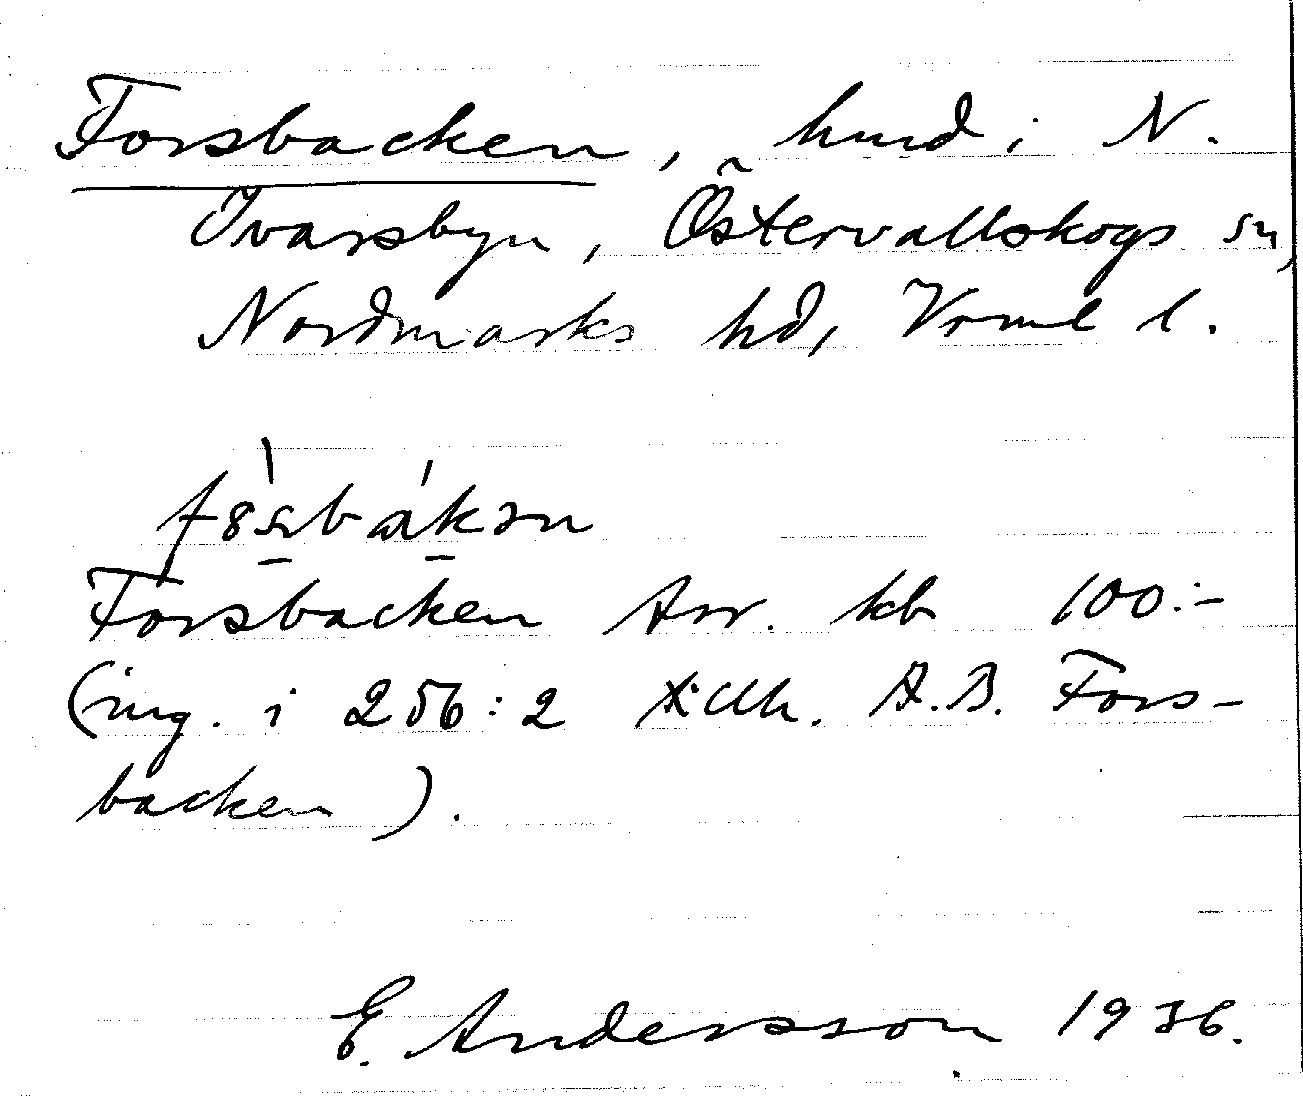 Forsbacken, hmd i N.
Ivarsbyn, Östervallskogs sn,
Nordmarks hd, Vrml l.
Forsbacken Arr. kb 100:-
(ing. i 256:2 A.B. Fors-
backen).
E. Andersson 1936.